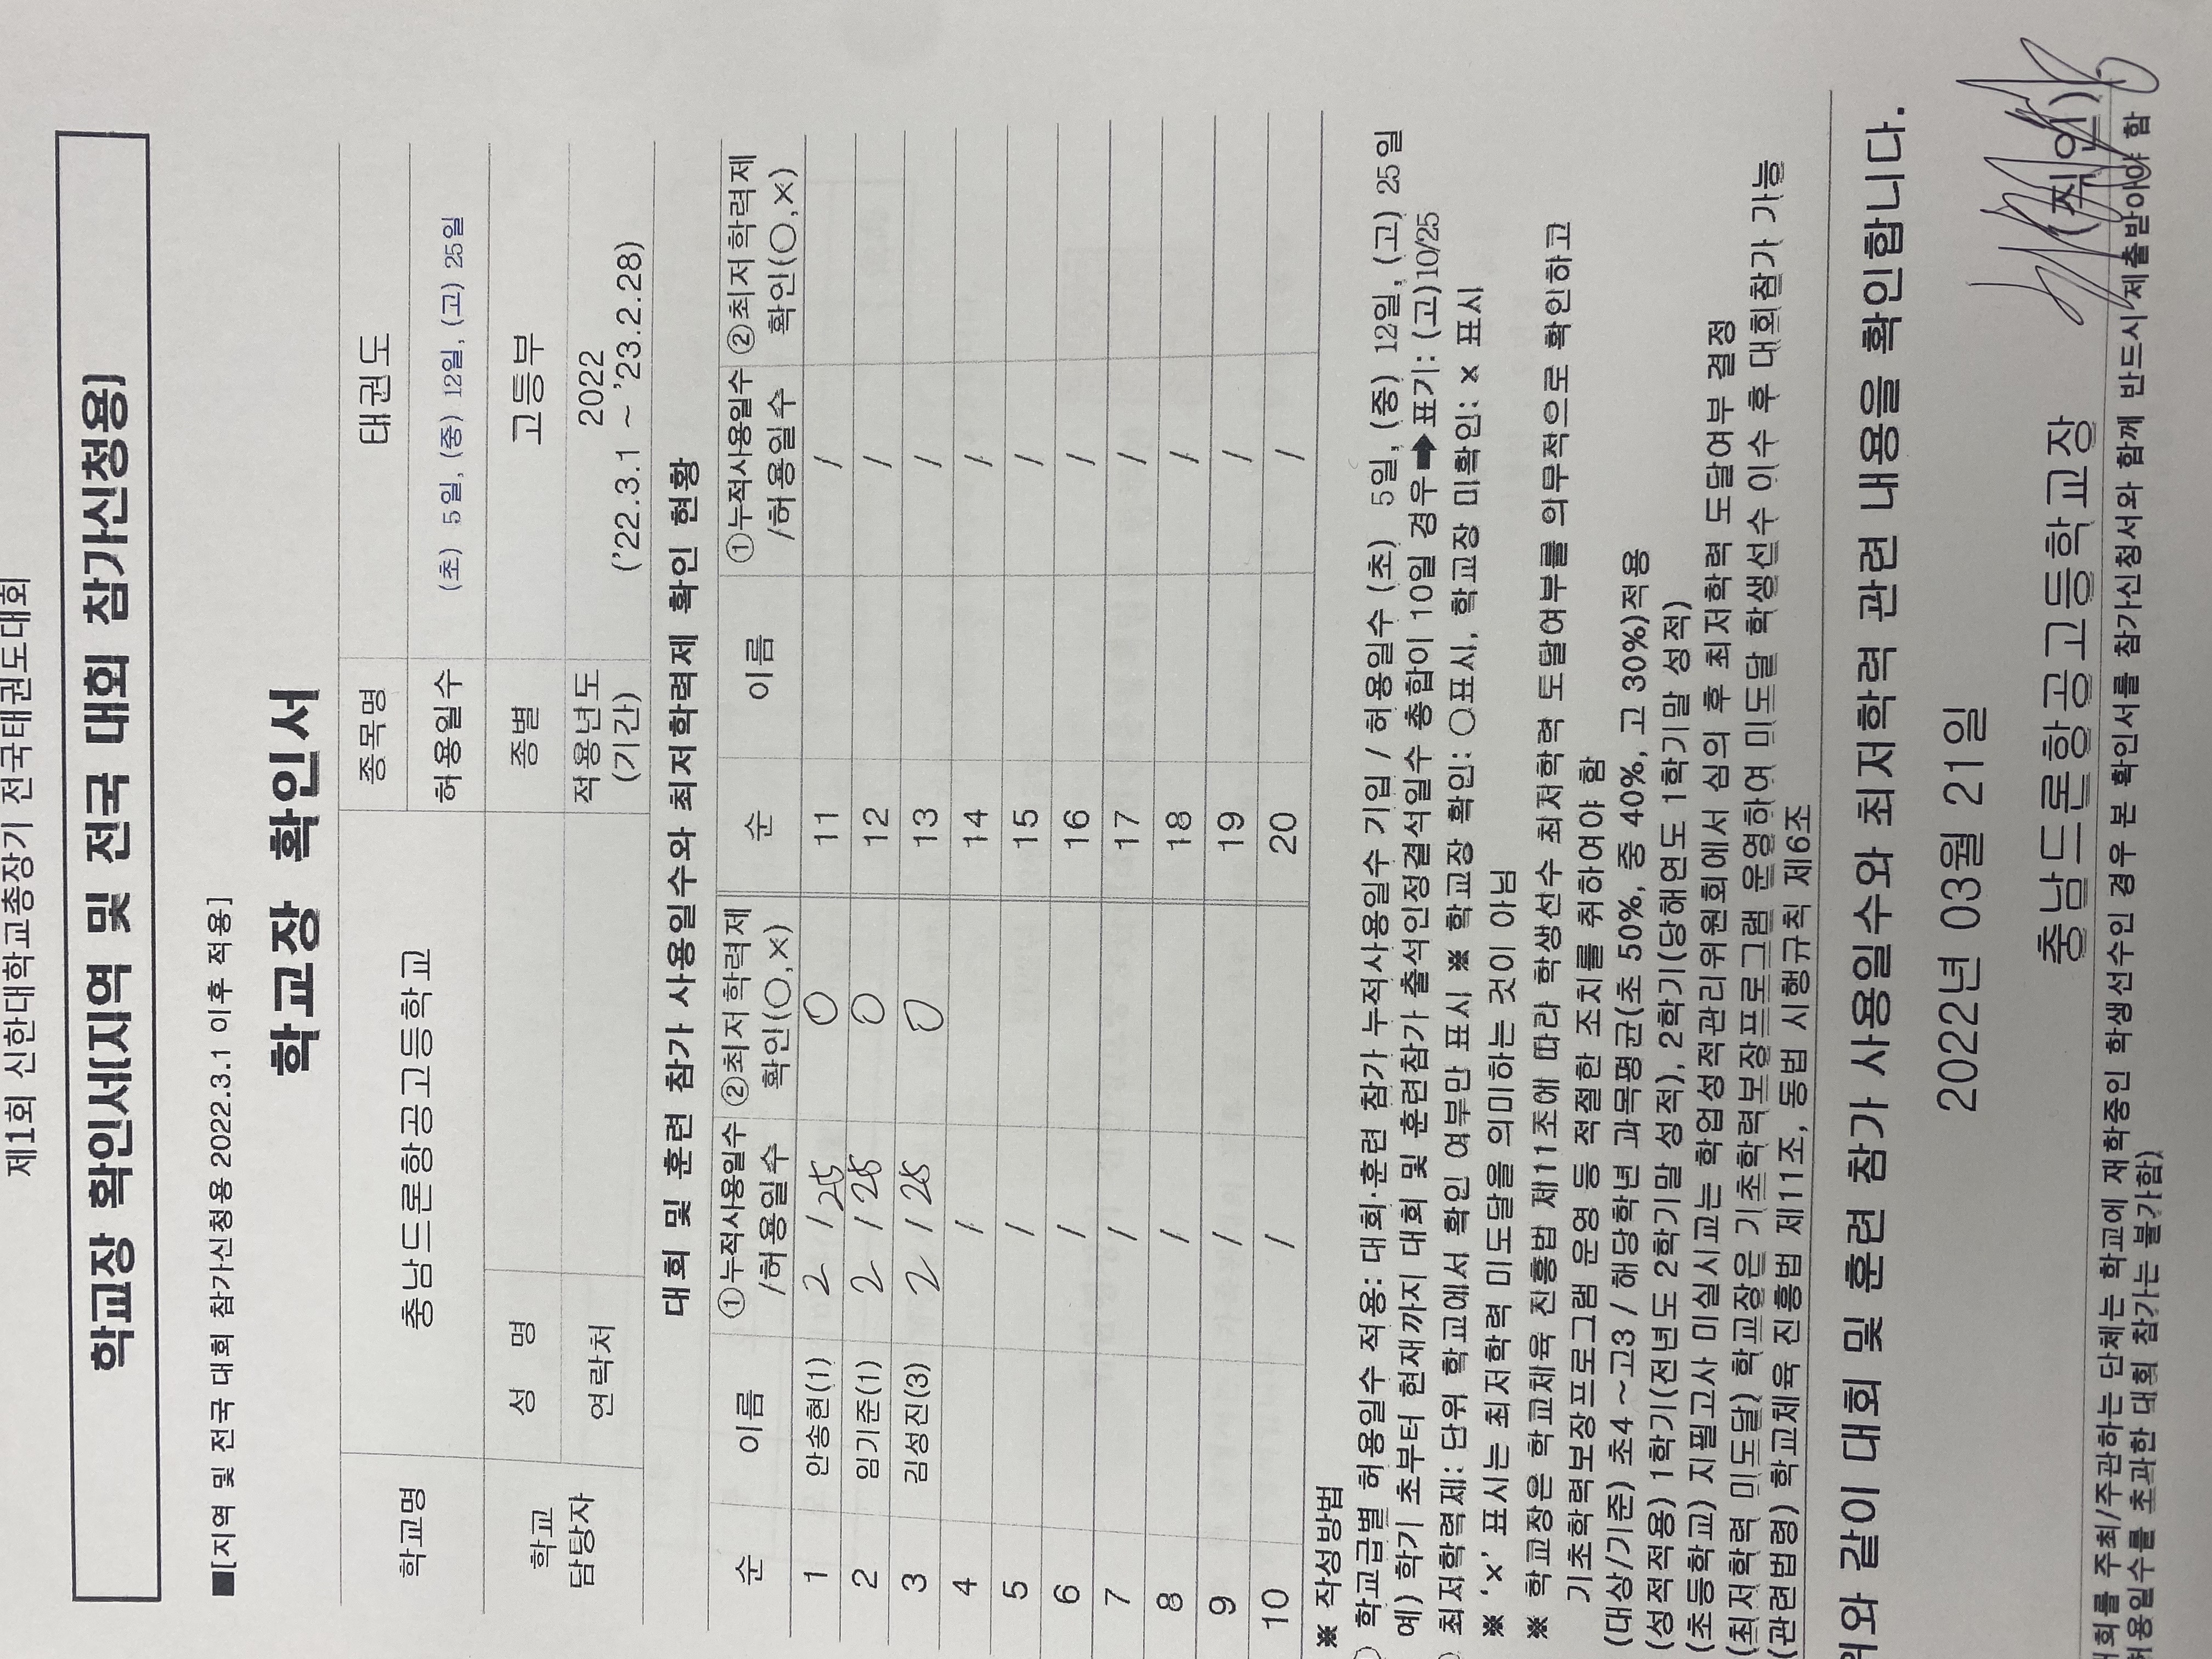 제1회 신한대학교총장기 전국태권도대회
학교장 확인서(지역 및 전국 대회 참가신청용)
■[지역 및 전국 대회 참가신청용 2022.3.1 이후 적용]
학교장 확인서
학교명 충남드론항공고등학교 종목명 태권도
허용일수 (초) 5일, (중) 12일, (고) 25일
학교 담당자 성 명 종별 고등부
연락처 적용년도 (기간) 2022 ('22.3.1 ~ '23.2.28)
대회 및 훈련 참가 사용일수와 최저학력제 확인 현황
순 이름 ①누적사용일수 /허용일수 ②최저학력제 확인(○,×) 순 이름 ①누적사용일수 /허용일수 ②최저학력제 확인(○,×)
1 안송현(1) 2 / 25 ○ 11 /
2 임기준(1) 2 / 25 ○ 12 /
3 김성진(3) 2 / 25 ○ 13 /
4 / 14 /
5 / 15 /
6 / 16 /
7 / 17 /
8 / 18 /
9 / 19 /
10 / 20 /
※ 작성방법
학교급별 허용일수 적용: 대회·훈련 참가 누적사용일수 기입 / 허용일수 (초) 5일, (중) 12일, (고) 25일
예) 학기 초부터 현재까지 대회 및 훈련참가 출석인정결석일수 총합이 10일 경우➡표기: (고)10/25
최저학력제: 단위 학교에서 확인 여부만 표시 ※ 학교장 확인: ○표시, 학교장 미확인: × 표시
※ '×' 표시는 최저학력 미도달을 의미하는 것이 아님
※ 학교장은 학교체육 진흥법 제11조에 따라 학생선수 최저학력 도달여부를 의무적으로 확인하고
기초학력보장프로그램 운영 등 적절한 조치를 취하여야 함
(대상/기준) 초4 ~고3 / 해당학년 과목평균(초 50%, 중 40%, 고 30%)적용
(성적적용) 1학기(전년도 2학기말 성적), 2학기(당해연도 1학기말 성적)
(초등학교) 지필고사 미실시교는 학업성적관리위원회에서 심의 후 최저학력 도달여부 결정
(최저학력 미도달) 학교장은 기초학력보장프로그램 운영하여 미도달 학생선수 이수 후 대회참가 가능
(관련법령) 학교체육 진흥법 제11조, 동법 시행규칙 제6조
위와 같이 대회 및 훈련 참가 사용일수와 최저학력 관련 내용을 확인합니다.
2022년 03월 21일
충남드론항공고등학교장 (직인)
대회를 주최/주관하는 단체는 학교에 재학중인 학생선수인 경우 본 확인서를 참가신청서와 함께 반드시 제출받아야 함
허용일수를 초과한 대회 참가는 불가함)